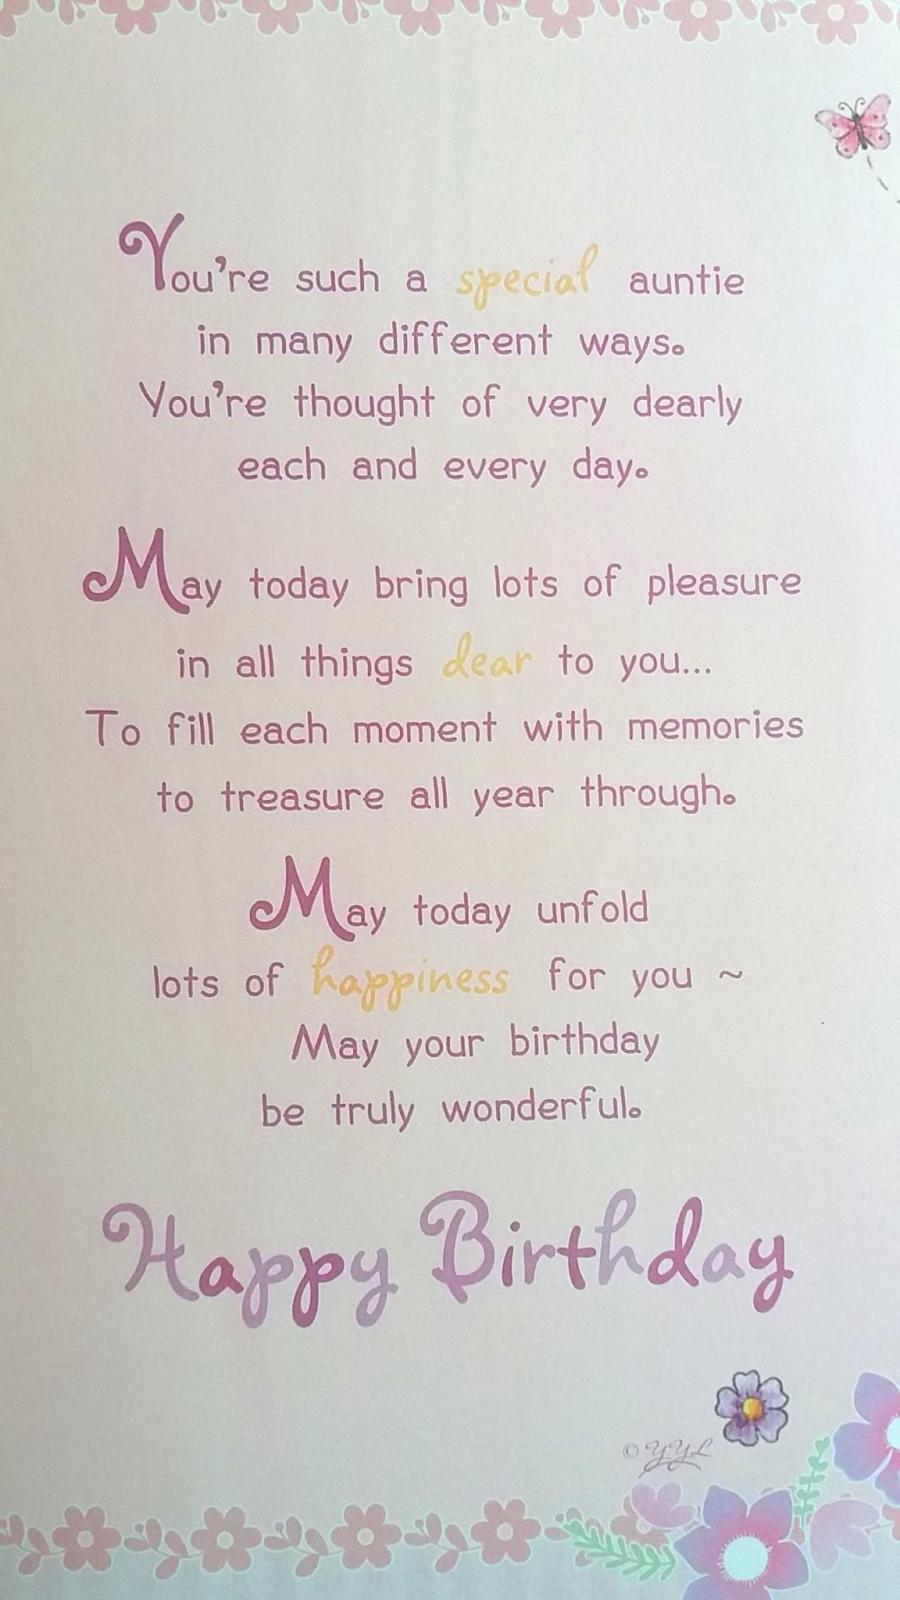 You're such a special auntie
in many different ways.
You're thought of very dearly
each and every day.
May today bring lots of pleasure
in all things dear to you...
To fill each moment with memories
to treasure all year through.
May today unfold
lots of happiness for you ~
May your birthday
be truly wonderful.
Happy Birthday
© YYL